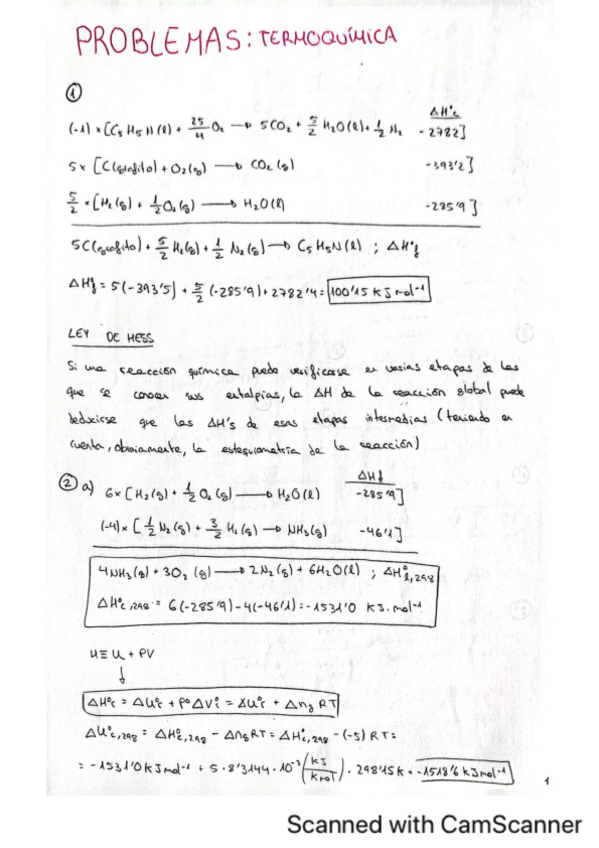 PROBLEMAS: TERMOQUÍMICA
①
ΔH°c
(-1) × [C5H5N(l) + 25/4 O2 → 5CO2 + 5/2 H2O(l) + 1/2 N2 -2782]
5 × [C(grafito) + O2(g) → CO2(g) -393'2]
5/2 · [H2(g) + 1/2 O2(g) → H2O(l) -285'9]
5C(grafito) + 5/2 H2(g) + 1/2 N2(g) → C5H5N(l) ; ΔH°f
ΔH°f = 5(-393'5) + 5/2 (-285'9) + 2782'4 = 100'15 KJ mol-1
LEY DE HESS
Si una reacción química puede verificarse en varias etapas de las
que se conocen sus entalpias, la ΔH de la reacción global puede
deducirse que las ΔH's de esas etapas intermedias (teniendo en
cuenta, obviamente, la estequiometría de la reacción)
② a)
ΔHf
6 × [H2(g) + 1/2 O2(g) → H2O(l) -285'9]
(-4) × [1/2 N2(g) + 3/2 H2(g) → NH3(g) -46'1]
4NH3(g) + 3O2(g) → 2N2(g) + 6H2O(l) ; ΔH°c,298
ΔH°c,298 = 6(-285'9) - 4(-46'1) = -1531'0 KJ·mol-1
H ≡ U + PV
↓
ΔH°c = ΔU°c + P°ΔV°c = ΔU°c + Δng RT
ΔU°c,298 = ΔH°c,298 - Δng RT = ΔH°c,298 - (-5) RT =
= -1531'0 KJ mol-1 + 5 · 8'3144 · 10-3 (KJ/K mol) · 298'15K = -1518'6 KJ mol-1
1
Scanned with CamScanner